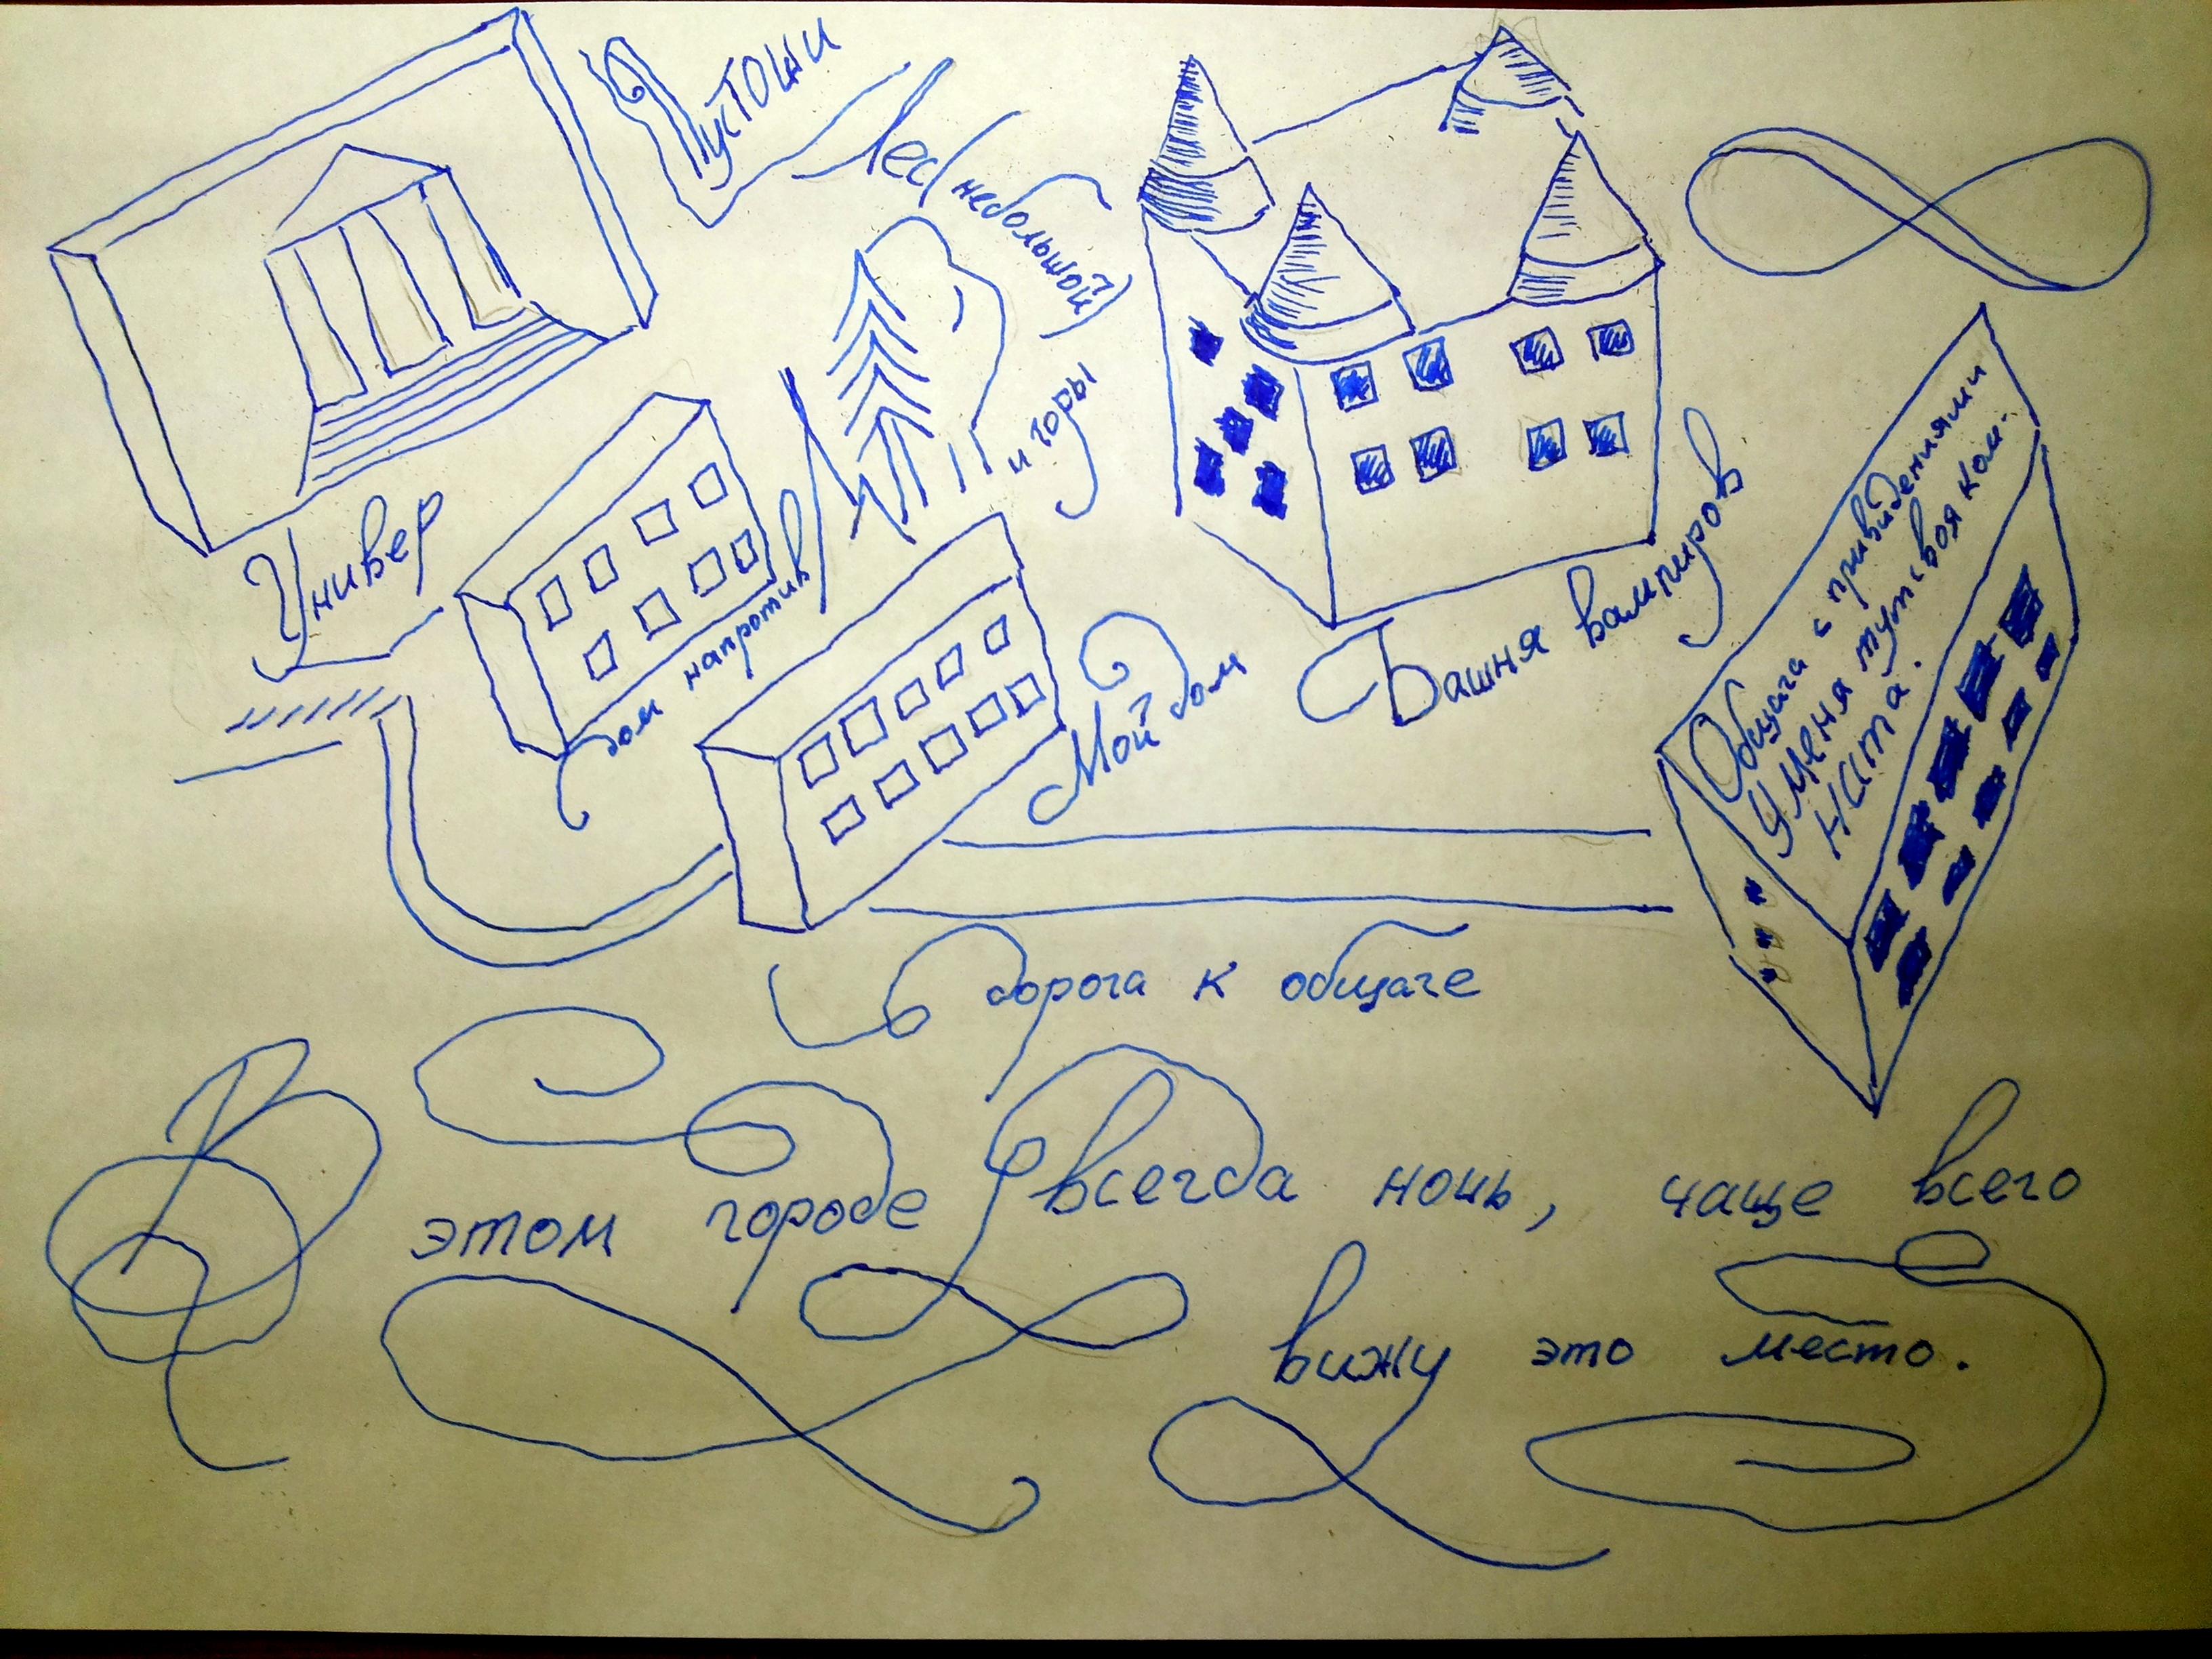 Пустоши
Лес (небольшой)
и горы
Универ
дом напротив
Мой дом
Башня вампиров
Общага с привидениями
У меня тут своя ком-
ната.
дорога к общаге
В этом городе всегда ночь, чаще всего
вижу это место.